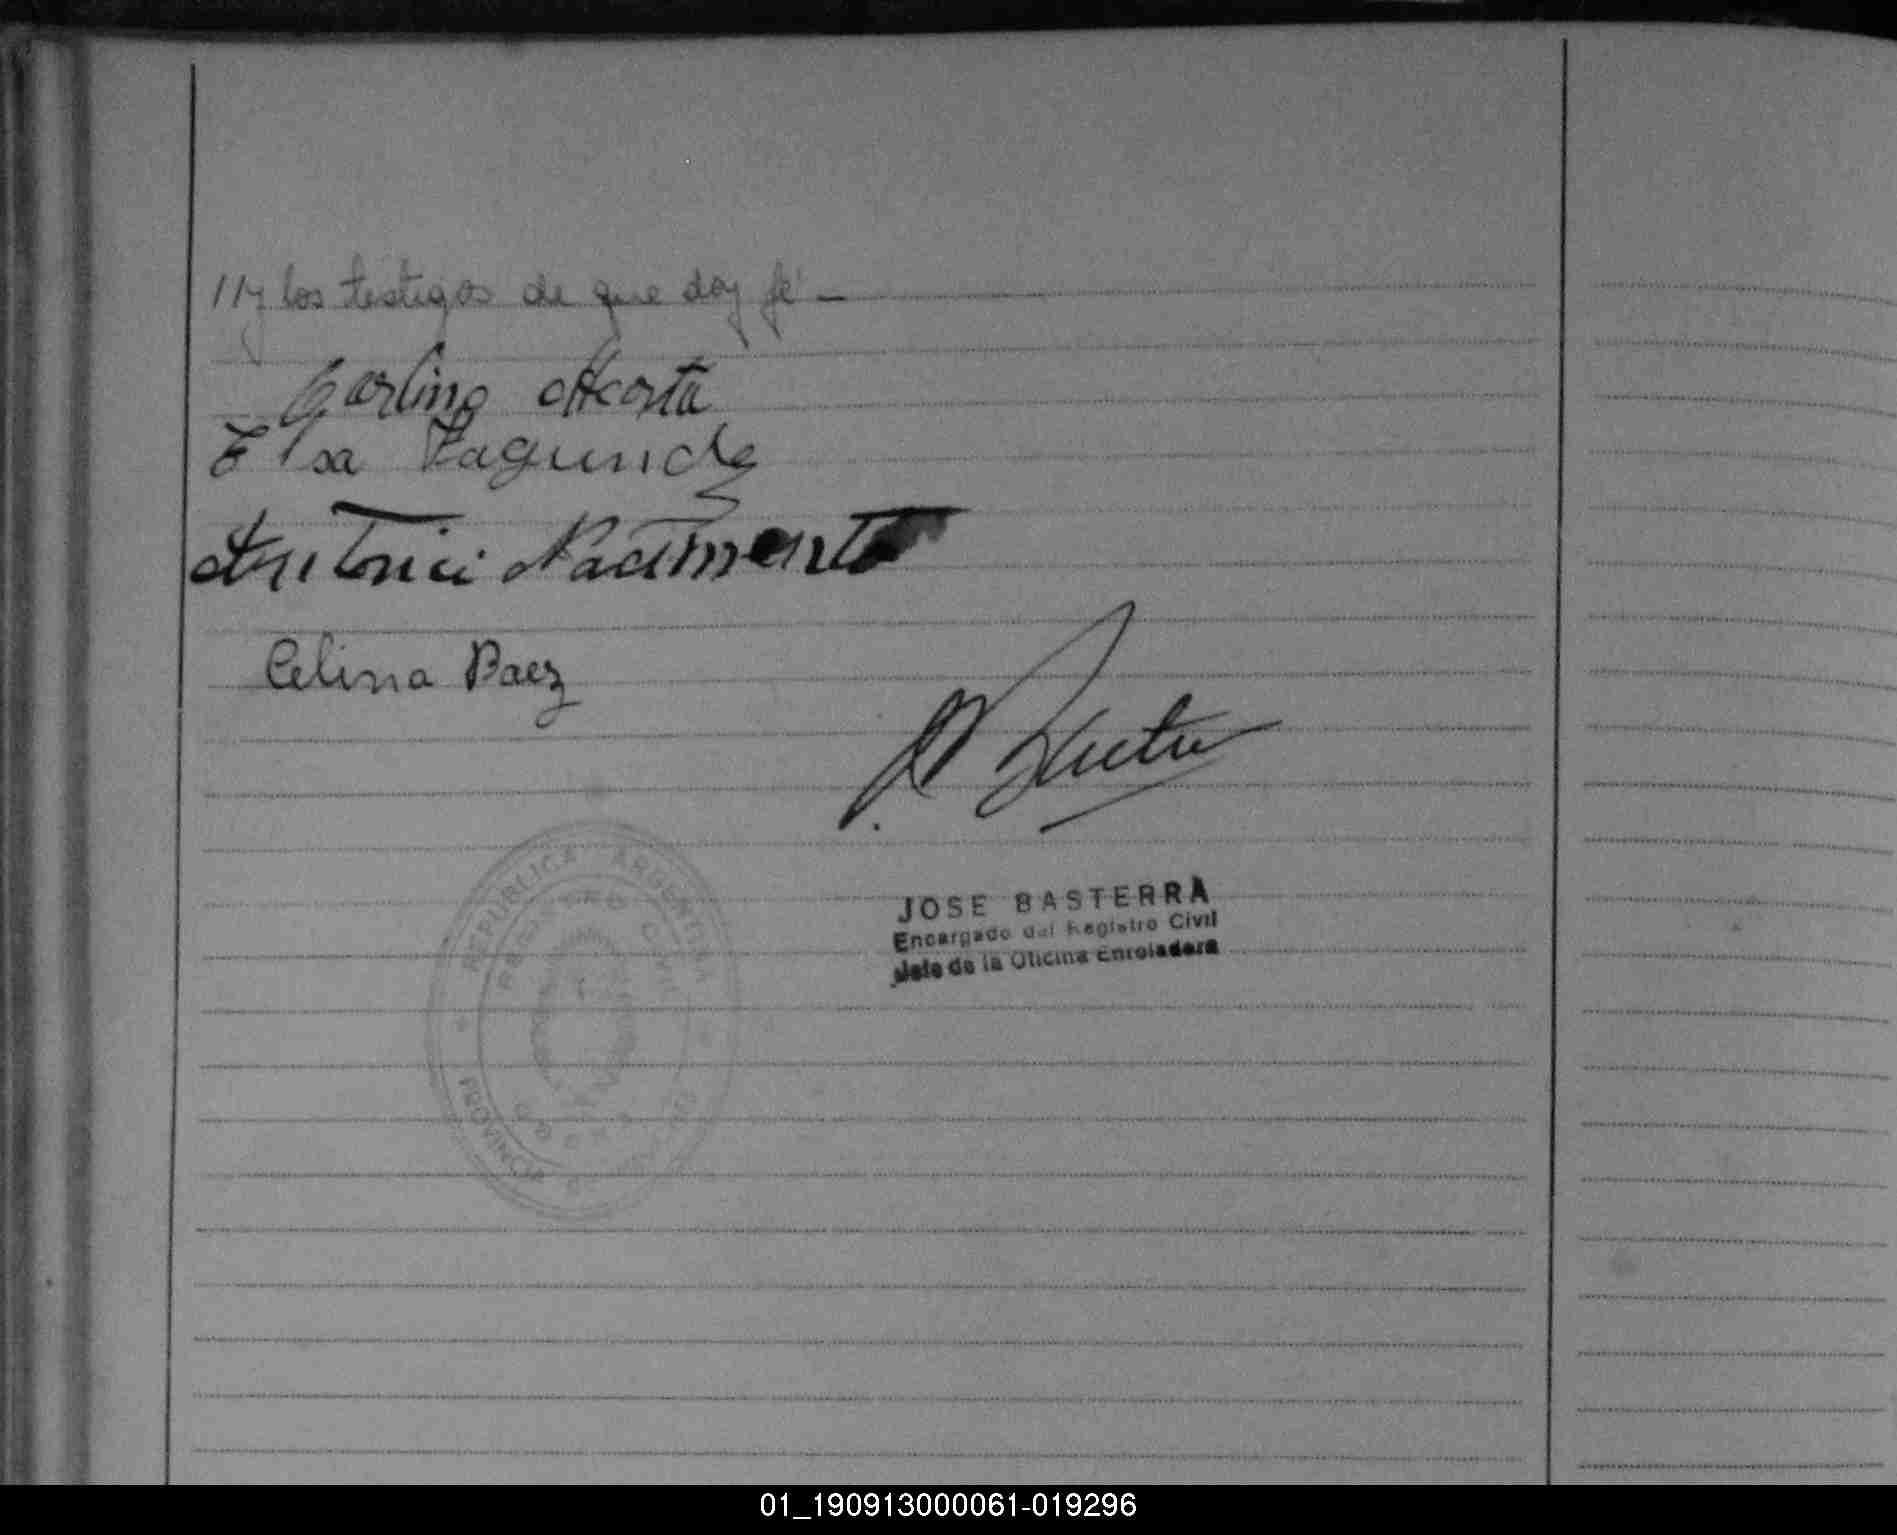 //y los testigos de que doy fé -
Carlino Acosta
Elsa Fagundez
Antonio Nacimento
Celina Baez
JOSE BASTERRA
Encargado del Registro Civil
Jefe de la Oficina Enroladora
REPUBLICA ARGENTINA
REGISTRO CIVIL
PROVINCIA
01_190913000061-019296